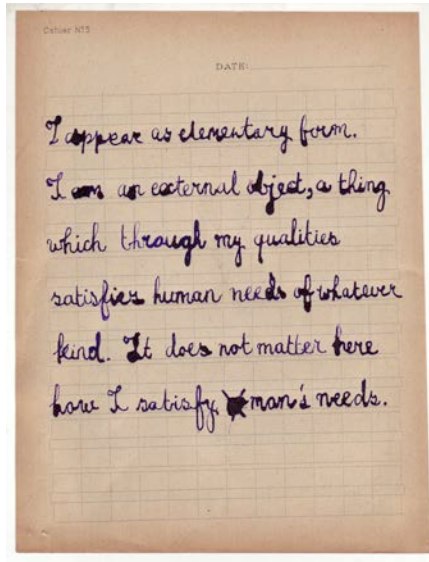 Cahier N°5
DATE:
I appear as elementary form.
I am an external object, a thing
which through my qualities
satisfies human needs of whatever
kind. It does not matter here
how I satisfy man's needs.